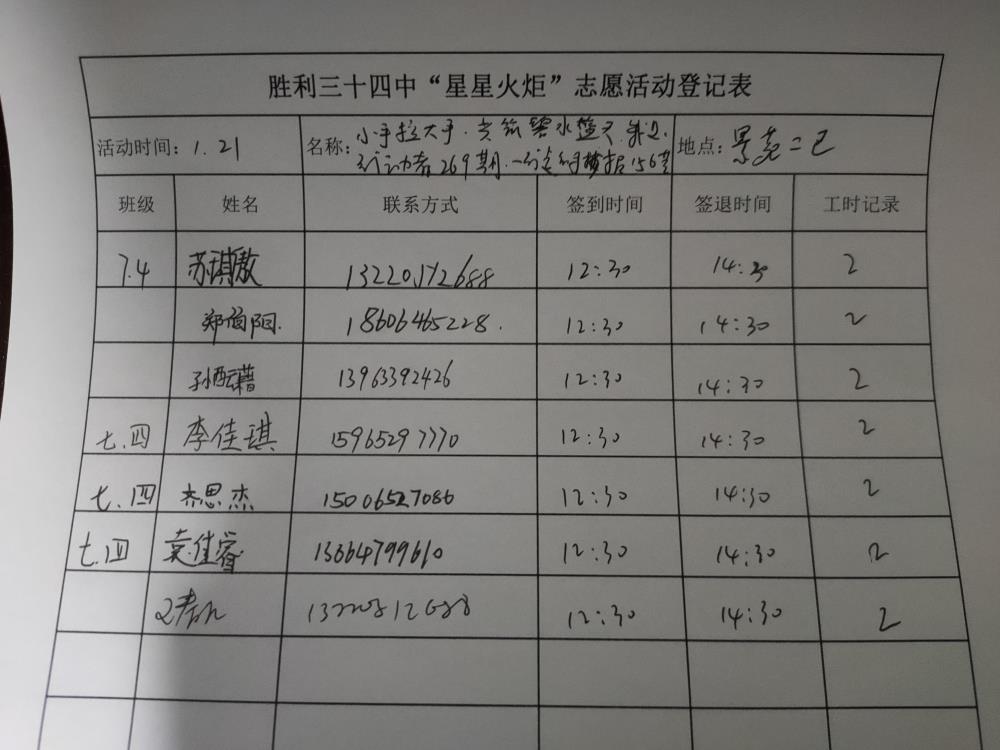 胜利三十四中“星星火炬”志愿活动登记表
活动时间：1.21 名称：小手拉大手.共筑碧水蓝天.身边 地点：景苑二区
行动者269期.一行走的手抄报156期
班级 姓名 联系方式 签到时间 签退时间 工时记录
7.4 苏琪傲 13220512688 12:30 14:30 2
郑向阳. 18606465228. 12:30 14:30 2
孙 13963392426 12:30 14:30 2
七.四 李佳琪 15965297770 12:30 14:30 2
七.四 齐思杰 15006527086 12:30 14:30 2
七.四 袁佳睿 13664799610 12:30 14:30 2
12:30 14:30 2